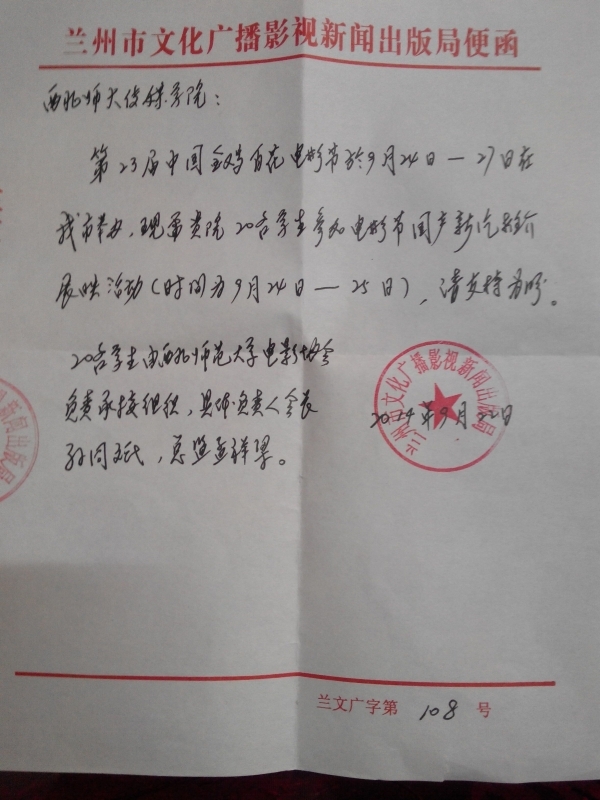 兰州市文化广播影视新闻出版局便函
西北师大传媒学院：
第23届中国金鸡百花电影节于9月24日—27日在
我市举办，现需贵院20名学生参加电影节国产新片推介
展映活动（时间为9月24日—25日），请支持为盼。
20名学生由西北师范大学电影协会
负责承接组织，具体负责人会长
孙同
兰州市文化广播影视新闻出版局
2014年9月22日
新闻出版局
兰文广字第 108 号